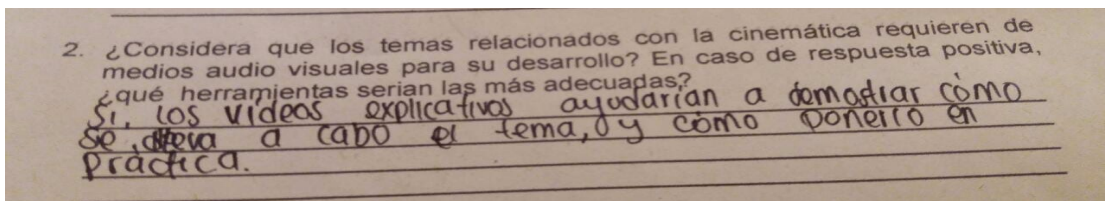 2. ¿Considera que los temas relacionados con la cinemática requieren de
medios audio visuales para su desarrollo? En caso de respuesta positiva,
¿qué herramientas serian las más adecuadas?
Si, los videos explicativos ayudarían a demostrar cómo
se lleva a cabo el tema, y cómo ponerlo en
práctica.